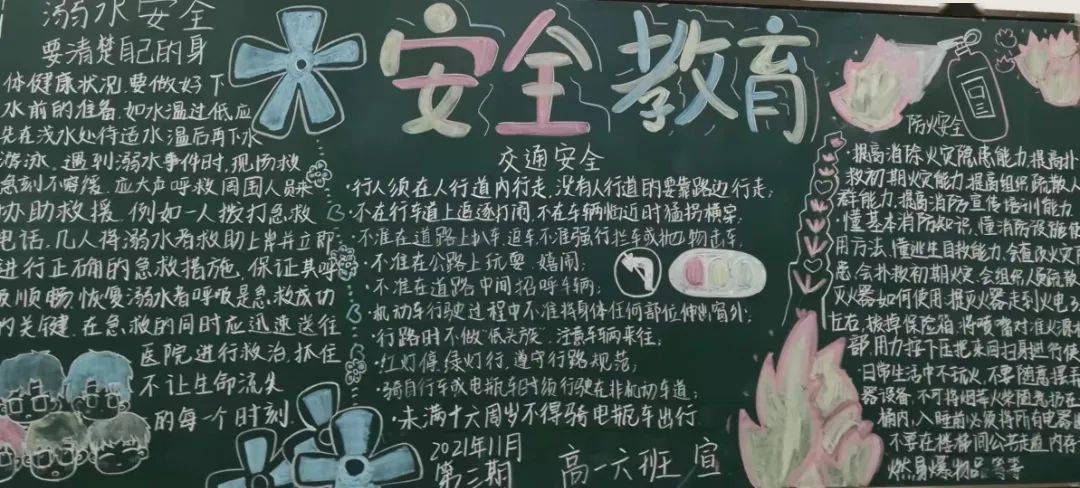 安全教育
溺水安全
要清楚自己的身
体健康状况,要做好下
水前的准备,如水温过低应
先在浅水处待适水温后再下水
游泳。遇到溺水事件时,现场救
急刻不容缓,应大声呼救周围人员来
协助救援,例如一人拨打急救
电话,几人将溺水者救助上岸并立即
进行正确的急救措施,保证其呼
吸顺畅恢复溺水者呼吸是急救成功
的关键,在急救的同时应迅速送往
医院进行救治,抓住
不让生命流失
的每一个时刻
交通安全
·行人须在人行道内行走,没有人行道的要靠路边行走;
·不在行车道上追逐打闹,不在车辆临近时猛拐横穿;
·不准在道路上扒车,追车,不准强行拦车或抛物击车;
·不准在公路上玩耍、嬉闹;
·不准在道路中间招呼车辆;
·机动车行驶过程中不准将身体任何部位伸出窗外;
行路时不做“低头族”,注意车辆来往;
·红灯停,绿灯行,遵守行路规范;
·骑自行车或电瓶车时须行驶在非机动车道;
·未满十六周岁不得骑电瓶车出行
2021年11月
第三期
高一六班 宣
防火安全
·提高消除火灾隐患能力,提高扑
救初期火灾能力,提高组织疏散人
群能力,提高消防宣传培训能力
·懂基本消防知识,懂消防设施使
用方法,懂逃生自救能力,会查改火灾
患,会扑救初期火灾,会组织人员疏散
灭火器如何使用:提灭火器走到火电
左右,拔掉保险箱,将喷嘴对准火源根
部,用力按下压把来回扫身进行使
·日常生活中不玩火,不要随意摆弄
器设备,不可将烟蒂火柴随意扔在
桶内,入睡前必须将所有电器
不要在楼梯间公共走道内存
燃易爆物品等等